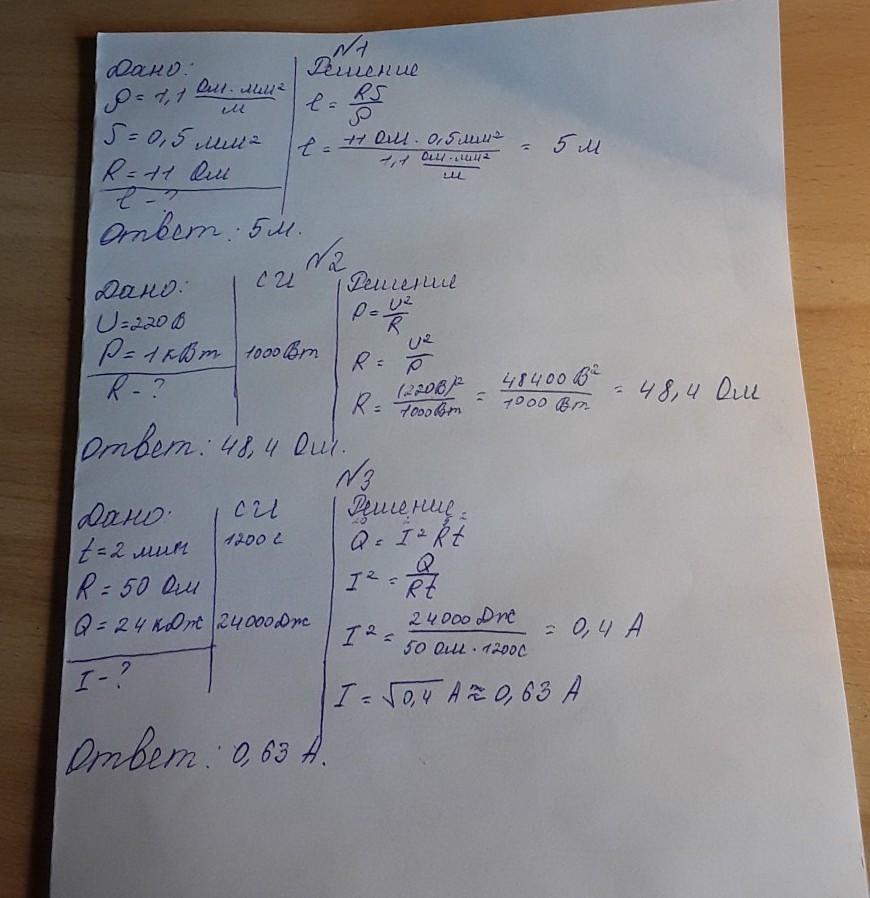 №1
Дано:
ρ = 1,1 Ом·мм²/м
S = 0,5 мм²
R = 11 Ом
l - ?
Решение
l = RS/ρ
l = 11 Ом · 0,5 мм² / 1,1 Ом·мм²/м = 5 м
Ответ: 5 м.
№2
Дано:
U = 220 В
P = 1 кВт
R - ?
СИ
1000 Вт
Решение
P = U²/R
R = U²/P
R = (220В)²/1000Вт = 48400 В²/1000 Вт = 48,4 Ом
Ответ: 48,4 Ом.
№3
Дано:
t = 2 мин
R = 50 Ом
Q = 24 кДж
I - ?
СИ
1200 с
24000 Дж
Решение
Q = I² R t
I² = Q/Rt
I² = 24000 Дж / 50 Ом · 1200с = 0,4 А
I = √0,4 А ≈ 0,63 А
Ответ: 0,63 А.